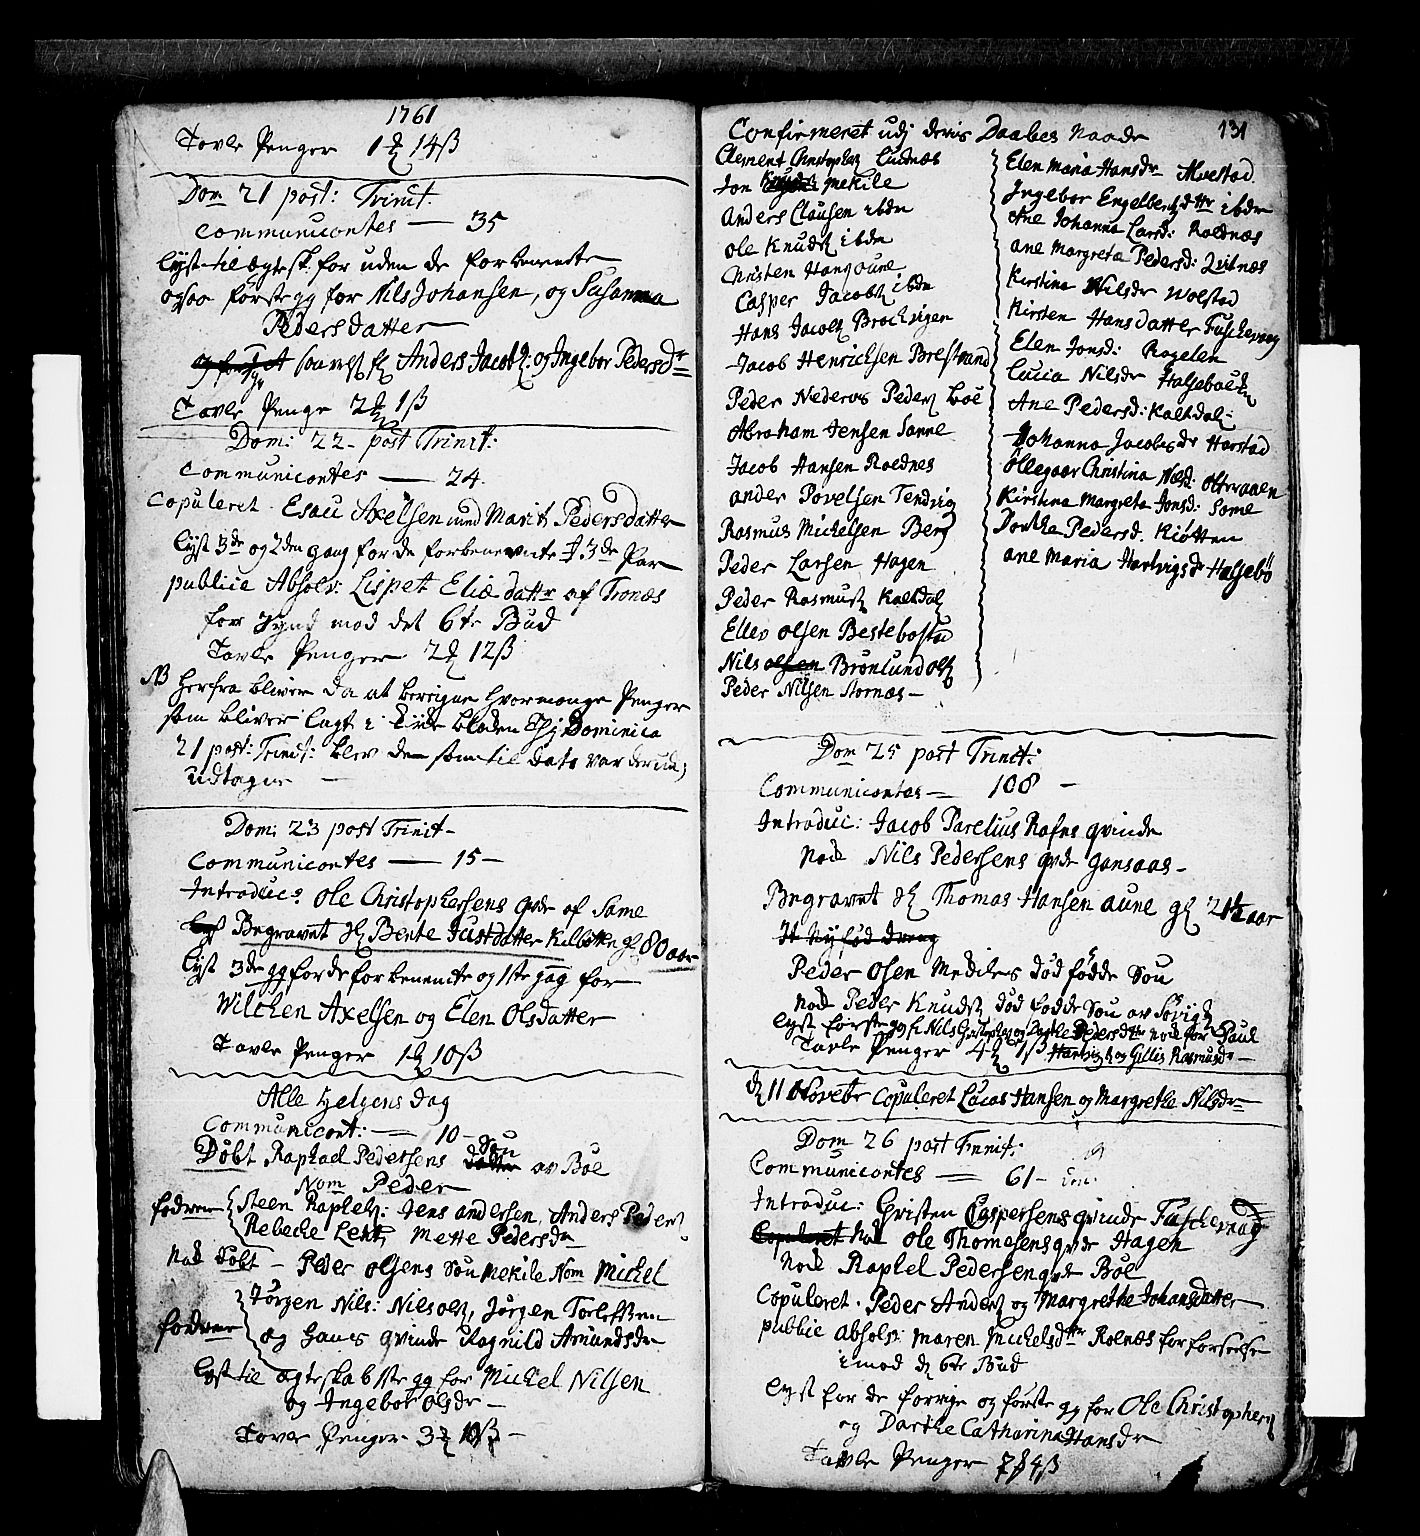 1761
Tavle Penger 1 14ß
Dom 21 post: Trinit.
Communicontes — 35
lyst til ægtesk. for uden de forbenente
ogsaa første gg for Nils Johansen, og Susanna
Pedersdatter
Anders Jacobs. og Ingebor Pedersdr
Tavle Penge 2 1ß
Dom: 22 post Trinit:
Communicontes — 24
Copuleret Esau Axelsen med Marit Pedersdatter
lyst 3de og 2den gang for de forbenevnte 3de Par
publice Absolv: Lispett Eliædattr af Tronæs
for synd mod det 6te Bud
Tavle Penger 2 12ß
NB herfra bliver da at beregne hvormange Penger
som bliver lagt i blocken Thj Dominica
21 post: Trinit: blev de som til dato var derudj
udtagne —
Dom: 23 post Trinit —
Communicontes — 15 —
Introduc: Ole Christophersens qvde af Same
Begravet Bente Justdatter Kilbotten gl 80 aar
lyst 3de gg for de forbenemte og 1ste gag for
Wilchen Axelsen og Elen Olsdatter
Tavle Penger 1 10ß
Alle Helgens dag
Communicont: — 10 —
Søn
Døbt Raphael Pedersens datter av Bøe
Nom Peder
fadrene Steen Raphels: Jens Andersen, Anders Peders
Rebecke Lents, Mette Pedersdr
nok Døbt — Peder Olsens Søn Mekile Nom Michel
Jørgen Nils: Nils Ols, Jørgen Torlefsen
fadrene
og Hans qvinde Ragnild Amundsdr
lyst til ægteskab 1ste gg for Michel Nilsen
og Ingebor Olsdr —
Tavle Penger 3 —
131
Confirmeret udj deris Daabes Naade
Clement Christophs Lundnæs
Jon Mekile
Anders Clausen ibdn
Ole Knuds ibdn
Christen Hans
Casper Jacobs ibdn
Hans Jacobs Brochvigen
Jacob Henrichsen Brestrand
Peder Nederos Peders Bøe
Abraham Jensen Sanne
Jacob Hansen Roldnes
Anders Povelsen Tendvig
Rasmus Michelsen Berg
Peder Larsen Hagen
Peder Rasmus Kaltdal
Ellev Olsen Bestebostad
Nils Olsen Brønlund Ols
Peder Nilsen Stornæs —
Elen Maria Hansdr
Ingebor Engelbertsdttr ibdn
Ane Johanna Larsd: Roldnæs
Ane Margreta Pedersd: Qvitnæs
Kirstina Nilsdr Wolstad
Kirsten Hansdatter Fuschevog
Elen Jonsd: Rogelen
Lucia Nilsdr
Ane Pedersd: Kaltdal:
Johanna Jacobsdr Harstad
Ollegaar Christina
Kirstina Margreta Jonsd: Same
Dorthe Pedersd. Kiøtten
Ane Maria Hartvigsdr Halsebø
Dom 25 post Trinit:
Communicontes — 108 —
Introduc: Jacob Parelius Rafns qvinde
Nok Nils Pedersens qvde Gansaas —
Begravet Thomas Hansen Aune gl 21½ aar
It nyfød dreng
Peder Olsen Mechiles død fødde Søn
Nok Peder Knuds død fødde Søn av Sørvig
lyst første gg Nils og Dorthe Pedersdttr nok for Paul
Tavle Penger 4 1ß Hartvigs og Gillis Rasmusdr —
d 11 Novebr Copuleret Lucas Hansen og Margrethe Nilsdr —
Dom 26 post Trinit:
Communicontes — 61 —
Introduc: Christen Caspersens qvinde Fuschevaag
Copuleret Nok Ole Thomesens qvde Hagen
Nok Raphel Pedersen qvde Bøe
Copuleret. Peder Anders og Margrethe Johansdatter —
publice absolv: Maren Michelsdttr Rolnæs for forseelse
imod d 6te Bud
lyst for de forrige og første gg for Ole Christophers
og Dorthe Catharina Hansdr
Tavle Penger 4ß